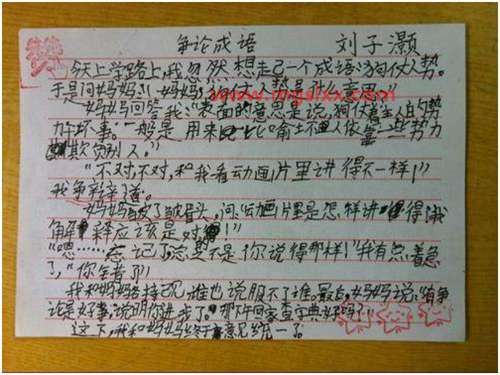 争论成语 刘子灏
今天上学路上,我忽然想走己一个成语:狗仗人势。
于是问妈妈:"妈妈,人势是什么意思
妈妈回答我:"表面的意思是说,狗仗着主人的势
力干坏事。一般是用来比比俞土不画人依靠一些势力
欺负别人。"
"不对,不对,和我看动画片里讲得不一样!"
我争辩道。
妈妈皱了皱眉头,问:"动画片里是怎样讲得
解释应该是对!"
"嗯……忘记了,总是不是你说得那样!"我有点着急
了,"你笨了!"
我和妈妈各持己见,谁也说服不了谁。最后,妈妈说:"有争
论是好事,说明你进步了。那下午回家查字典好吗?"
这下,我和妈妈终于意见统一了。
www.imgixx.com